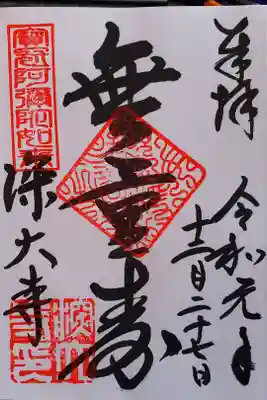 奉拝
令和元年
十二月二十七日
無量寿
寶冠阿彌陀如来
深大寺